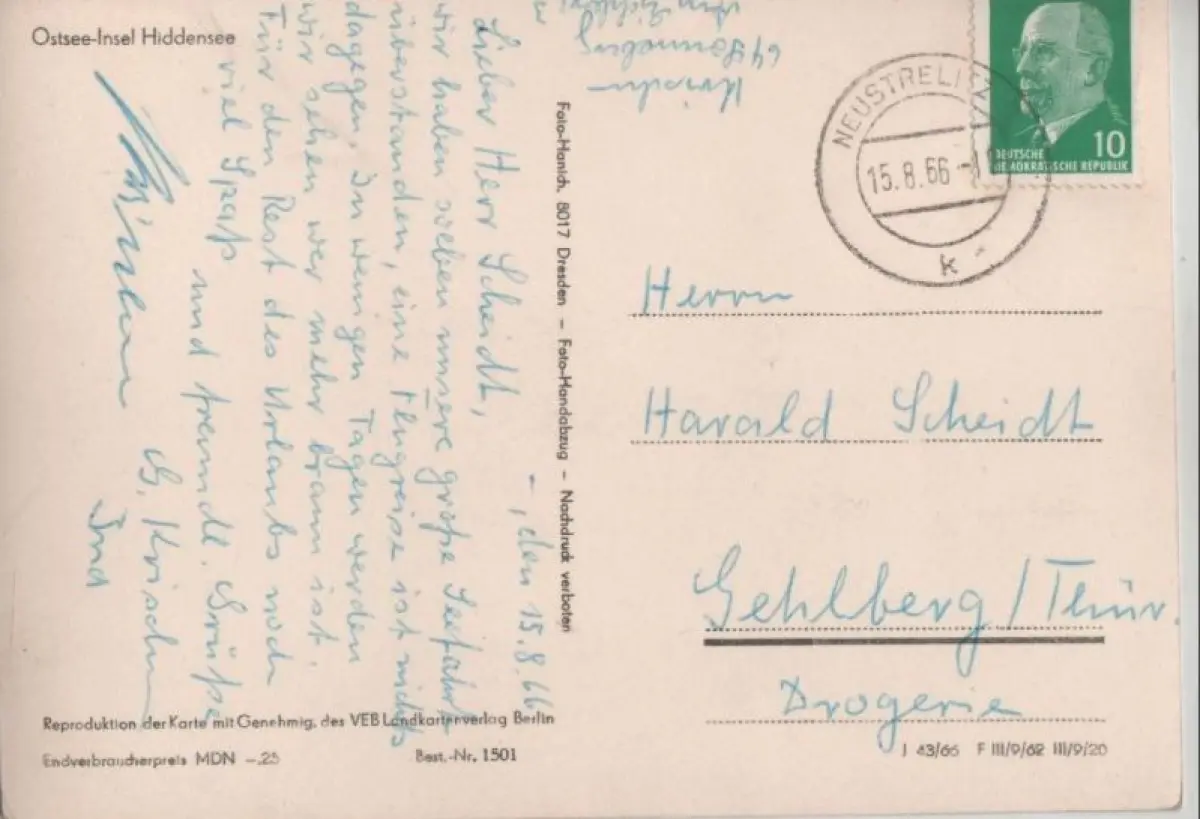 Ostsee-Insel Hiddensee
64 Sonneberg
-, den 15.8.66
Lieber Herr Scheidt,
wir haben soeben unsere große Seefahrt
überstanden, eine Flugreise ist nichts
dagegen. In wenigen Tagen werden
wir sehen wer mehr braun ist.
Für den Rest des Urlaubs noch
viel Spaß und freundl. Grüße
Und
Foto-Hanich, 8017 Dresden – Foto-Handabzug – Nachdruck verboten
Reproduktion der Karte mit Genehmig. des VEB Landkartenverlag Berlin
Endverbraucherpreis MDN -.25
Best.-Nr. 1501
NEUSTRELITZ
15.8.66
k
10
DEUTSCHE
DEMOKRATISCHE REPUBLIK
Herrn
Harald Scheidt
Gehlberg/Thür.
Drogerie
J 43/66 F III/9/62 III/9/20